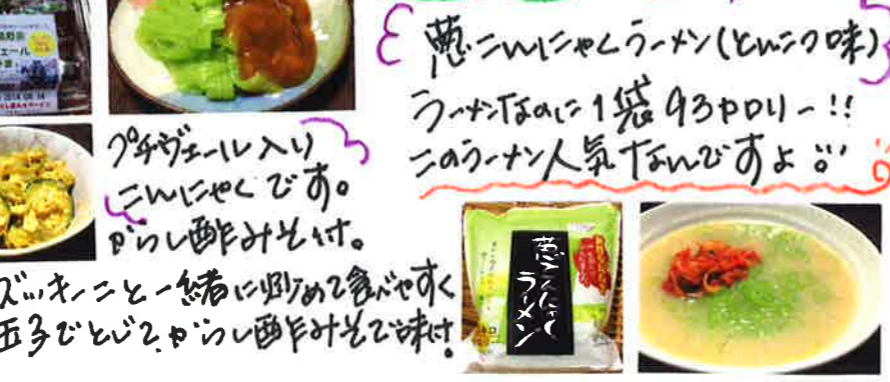 葱こんにゃくラーメン(とんこつ味)
ラーメンなのに1袋93カロリー!!
このラーメン人気なんですよ
プチヴェール入り
こんにゃくです。
からし酢みそ付。
ズッキーニと一緒に炒めて食べやすく
玉子でとじて、からし酢みそで味付
葱こんにゃく
ラーメン